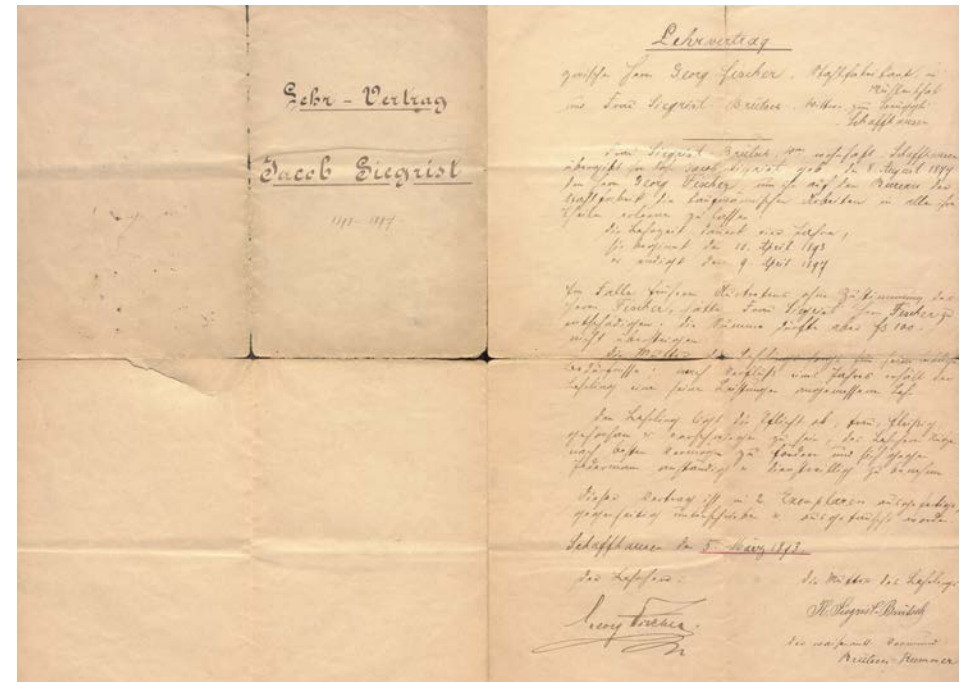 Lehr-Vertrag
Jacob Siegrist
1893-1897
Lehrvertrag
zwischen Herrn Georg Fischer, Stahlfabrikant, in
Mühlenthal
und Frau Siegrist-Brütsch, Wittwe
Schaffhausen
Frau Siegrist-Brütsch, wohnhaft Schaffhausen
übergibt ihr Sohn Jacob Siegrist geb. den 8. August 1877
dem Herrn Georg Fischer, um ihn auf dem Bureau der
Stahlfabrik die kaufmännischen Arbeiten in alle ihre
Theile erlernen zu lassen.
Die Lehrzeit dauert vier Jahre,
sie beginnt den 10. April 1893
er endigt den 9. April 1897
Im Falle frühern Austretens ohne Zustimmung des
Herrn Fischer, hätte Frau Siegrist Herrn Fischer zu
entschädigen; die Summe dürfte aber frs 100.-
nicht übersteigen.
Die Mutter des Lehrlings sorgt für seine
Bedürfnisse; nach Verfluss eines Jahres erhält der
Lehrling eine seine Leistungen angemessene
Dem Lehrling liegt die Pflicht ob, treu, fleißig,
gehorsam & verschwiegen zu sein, des Lehrherrn Nutzen
nach besten Vermögen zu fördern und sich gegen
Jedermann anständig & dienstwillig zu benehmen
Dieser Vertrag ist in 2 Exemplaren ausgefertigt,
gegenseitig unterschrieben & ausgetauscht worden
Schaffhausen den 5. März 1893.
Der Lehrherr:
Die Mutter des Lehrlings
Georg Fischer.
Siegrist-Brütsch